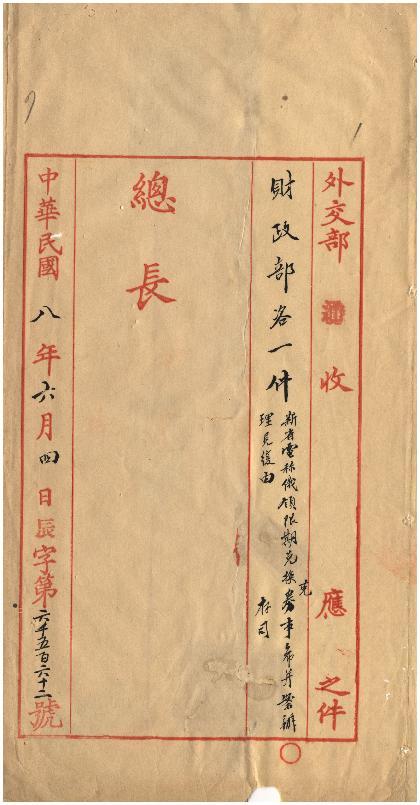 外交部 收 應 之件
財政部咨一件
新省電稱俄領限期兌換克券事希并案辦
理見復由
存司
總長
中華民國八年六月四日辰字第六千五百六十二號